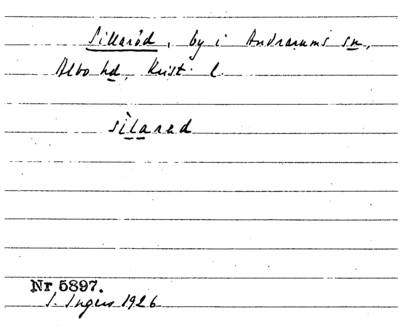 Sillaröd, by i Andrarums sn,
Albo hd, Krist. l.
sìlarəd
Nr 5897.
I. Ingers 1926